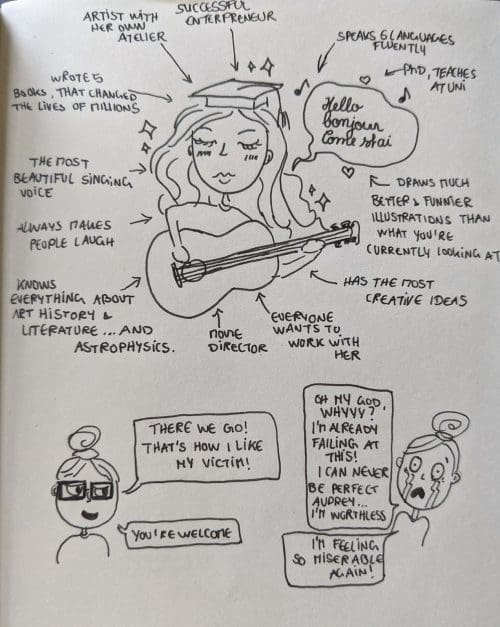 ARTIST WITH
HER OWN
ATELIER
SUCCESSFUL
ENTERPRENEUR
SPEAKS 6 LANGUAGES
FLUENTLY
PHD, TEACHES
AT UNI
WROTE 5
BOOKS, THAT CHANGED
THE LIVES OF MILLIONS
Hello
bonjour
Come stai
THE MOST
BEAUTIFUL SINGING
VOICE
DRAWS MUCH
BETTER & FUNNIER
ILLUSTRATIONS THAN
WHAT YOU'RE
CURRENTLY LOOKING AT
ALWAYS MAKES
PEOPLE LAUGH
KNOWS
EVERYTHING ABOUT
ART HISTORY &
LITERATURE ... AND
ASTROPHYSICS.
HAS THE MOST
CREATIVE IDEAS
MOVIE
DIRECTOR
EVERYONE
WANTS TO
WORK WITH
HER
THERE WE GO!
THAT'S HOW I LIKE
MY VICTIM!
YOU'RE WELCOME
OH MY GOD,
WHYYY?
I'M ALREADY
FAILING AT
THIS!
I CAN NEVER
BE PERFECT
AUDREY...
I'M WORTHLESS
I'M FEELING
SO MISERABLE
AGAIN!